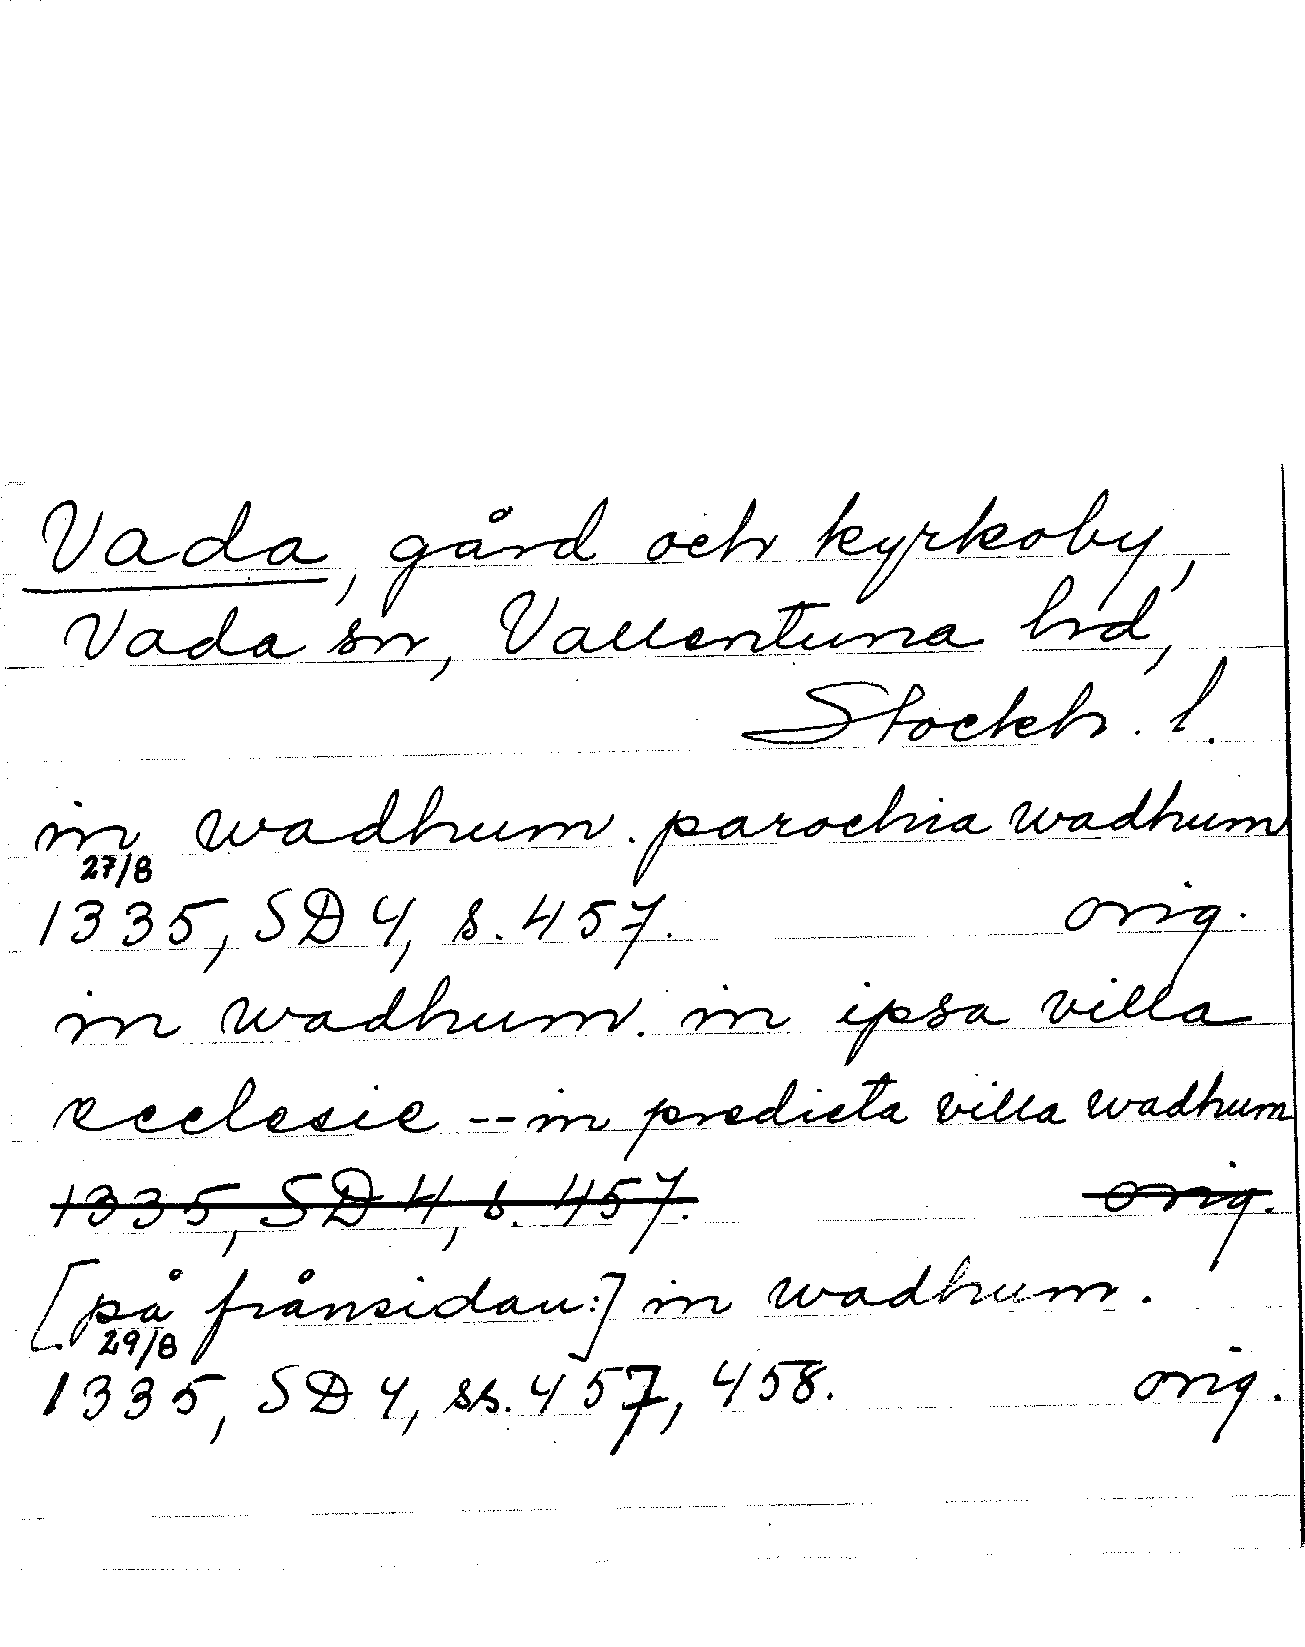 Vada, gård och kyrkoby,
Vada sn, Vallentuna hrd,
Stockh. l.
in wadhum. parochia wadhum
27/8
1335, SD 4, s. 457. orig.
in wadhum. in ipsa villa
ecclesie -- in predicta villa wadhum
1335, SD 4, s. 457. orig.
[på frånsidan:] in wadhum.
29/8
1335, SD 4, ss. 457, 458. orig.